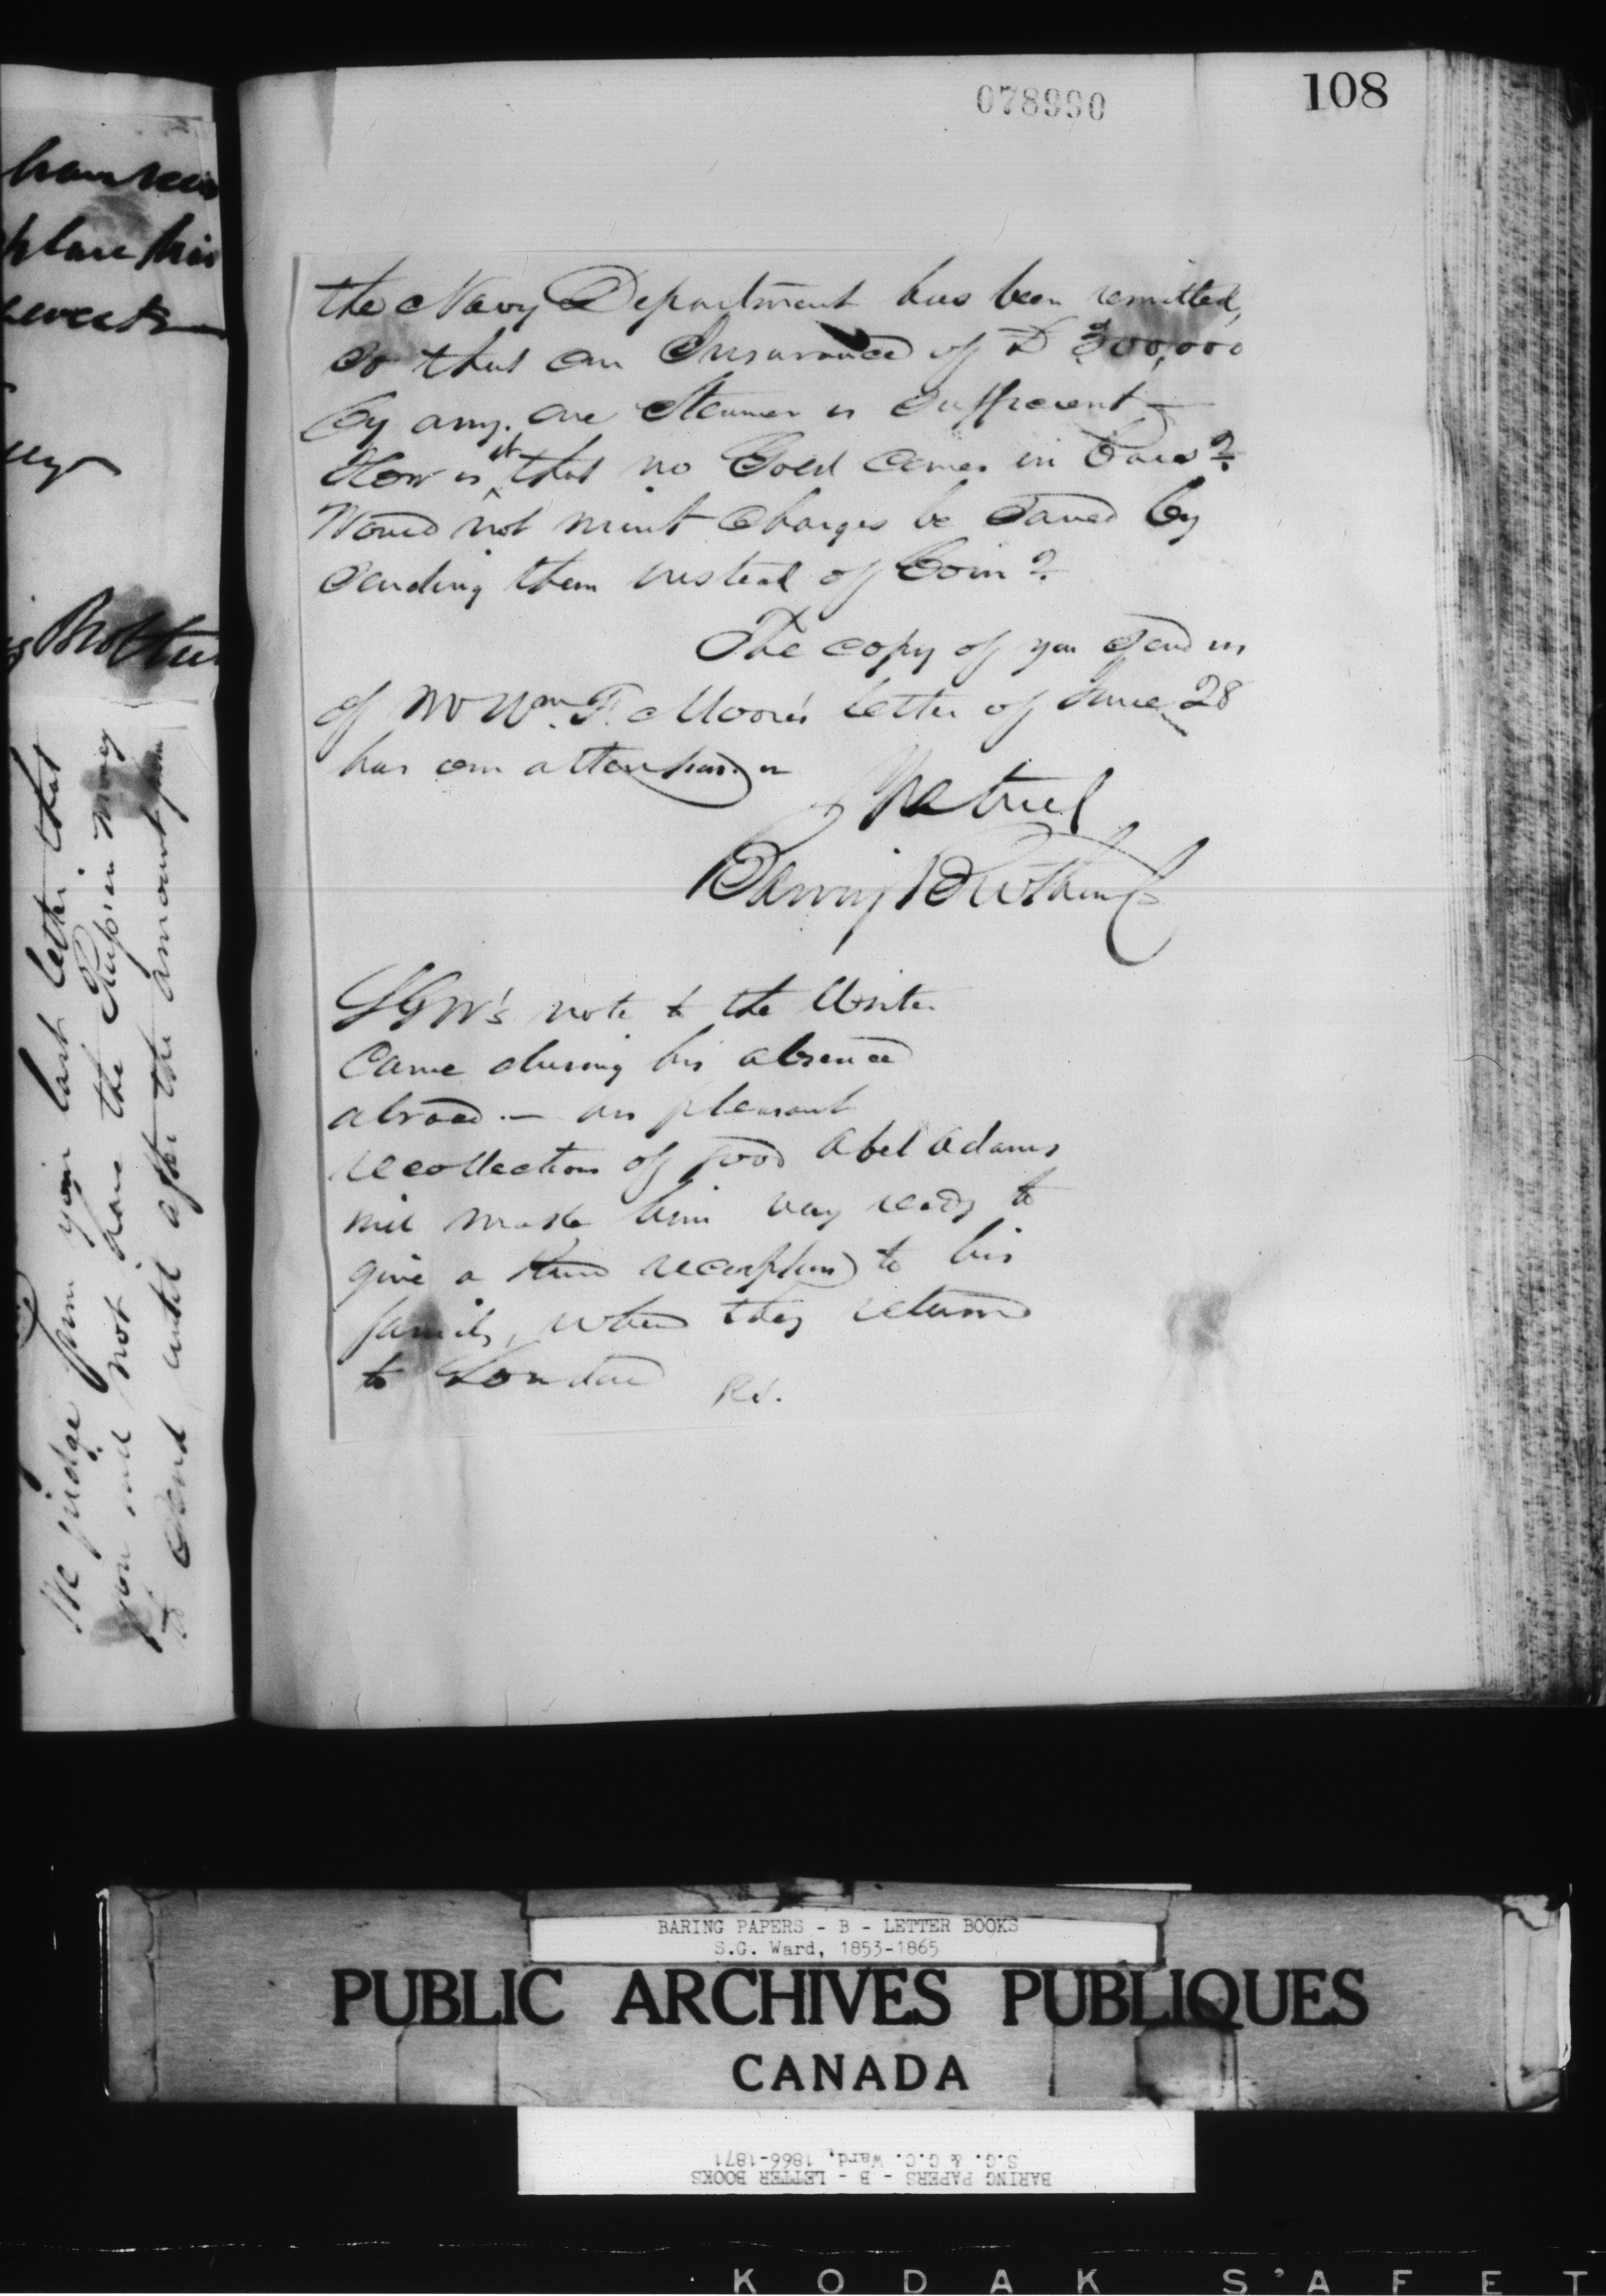 have
place his
Brother
We judge from your last letter that
you will not have the Russian money
to send until after the amount from
078990
108
the Navy Department has been remitted,
so that an Insurance of D 300,000
by any one Steamer is sufficient —
How is it that no Gold comes in Bars?
Would not mint charges be saved by
sending them instead of Coin?
The copy of you send us
of Mr Wm. F. Moore's letter of June 28
has our attention
Baring Brothers
SGW's note to the Writer
came during his absence
abroad — his pleasant
recollections of good Abel Adams
will make him very ready to
give a kind reception to his
family, when they return
to London
BARING PAPERS - B - LETTER BOOKS
S.G. Ward, 1853-1865
PUBLIC ARCHIVES PUBLIQUES
CANADA
S.G. & G.C. Ward, 1866-1871
BARING PAPERS - B - LETTER BOOKS
KODAK S'AFET